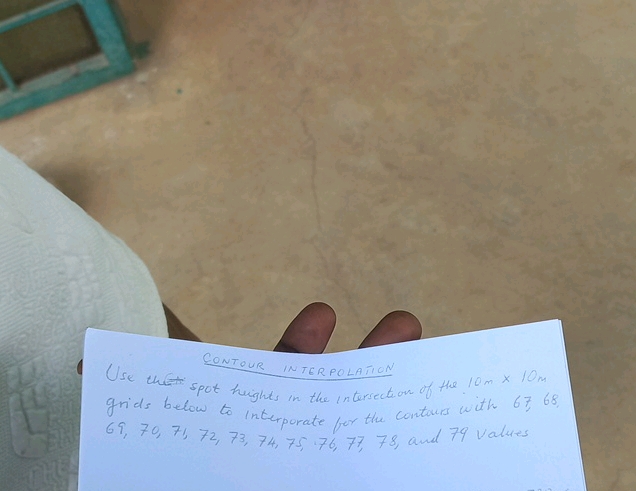 CONTOUR INTERPOLATION
Use the spot heights in the intersection of the 10m x 10m
grids below to interporate for the contours with 67, 68,
69, 70, 71, 72, 73, 74, 75, 76, 77, 78, and 79 values